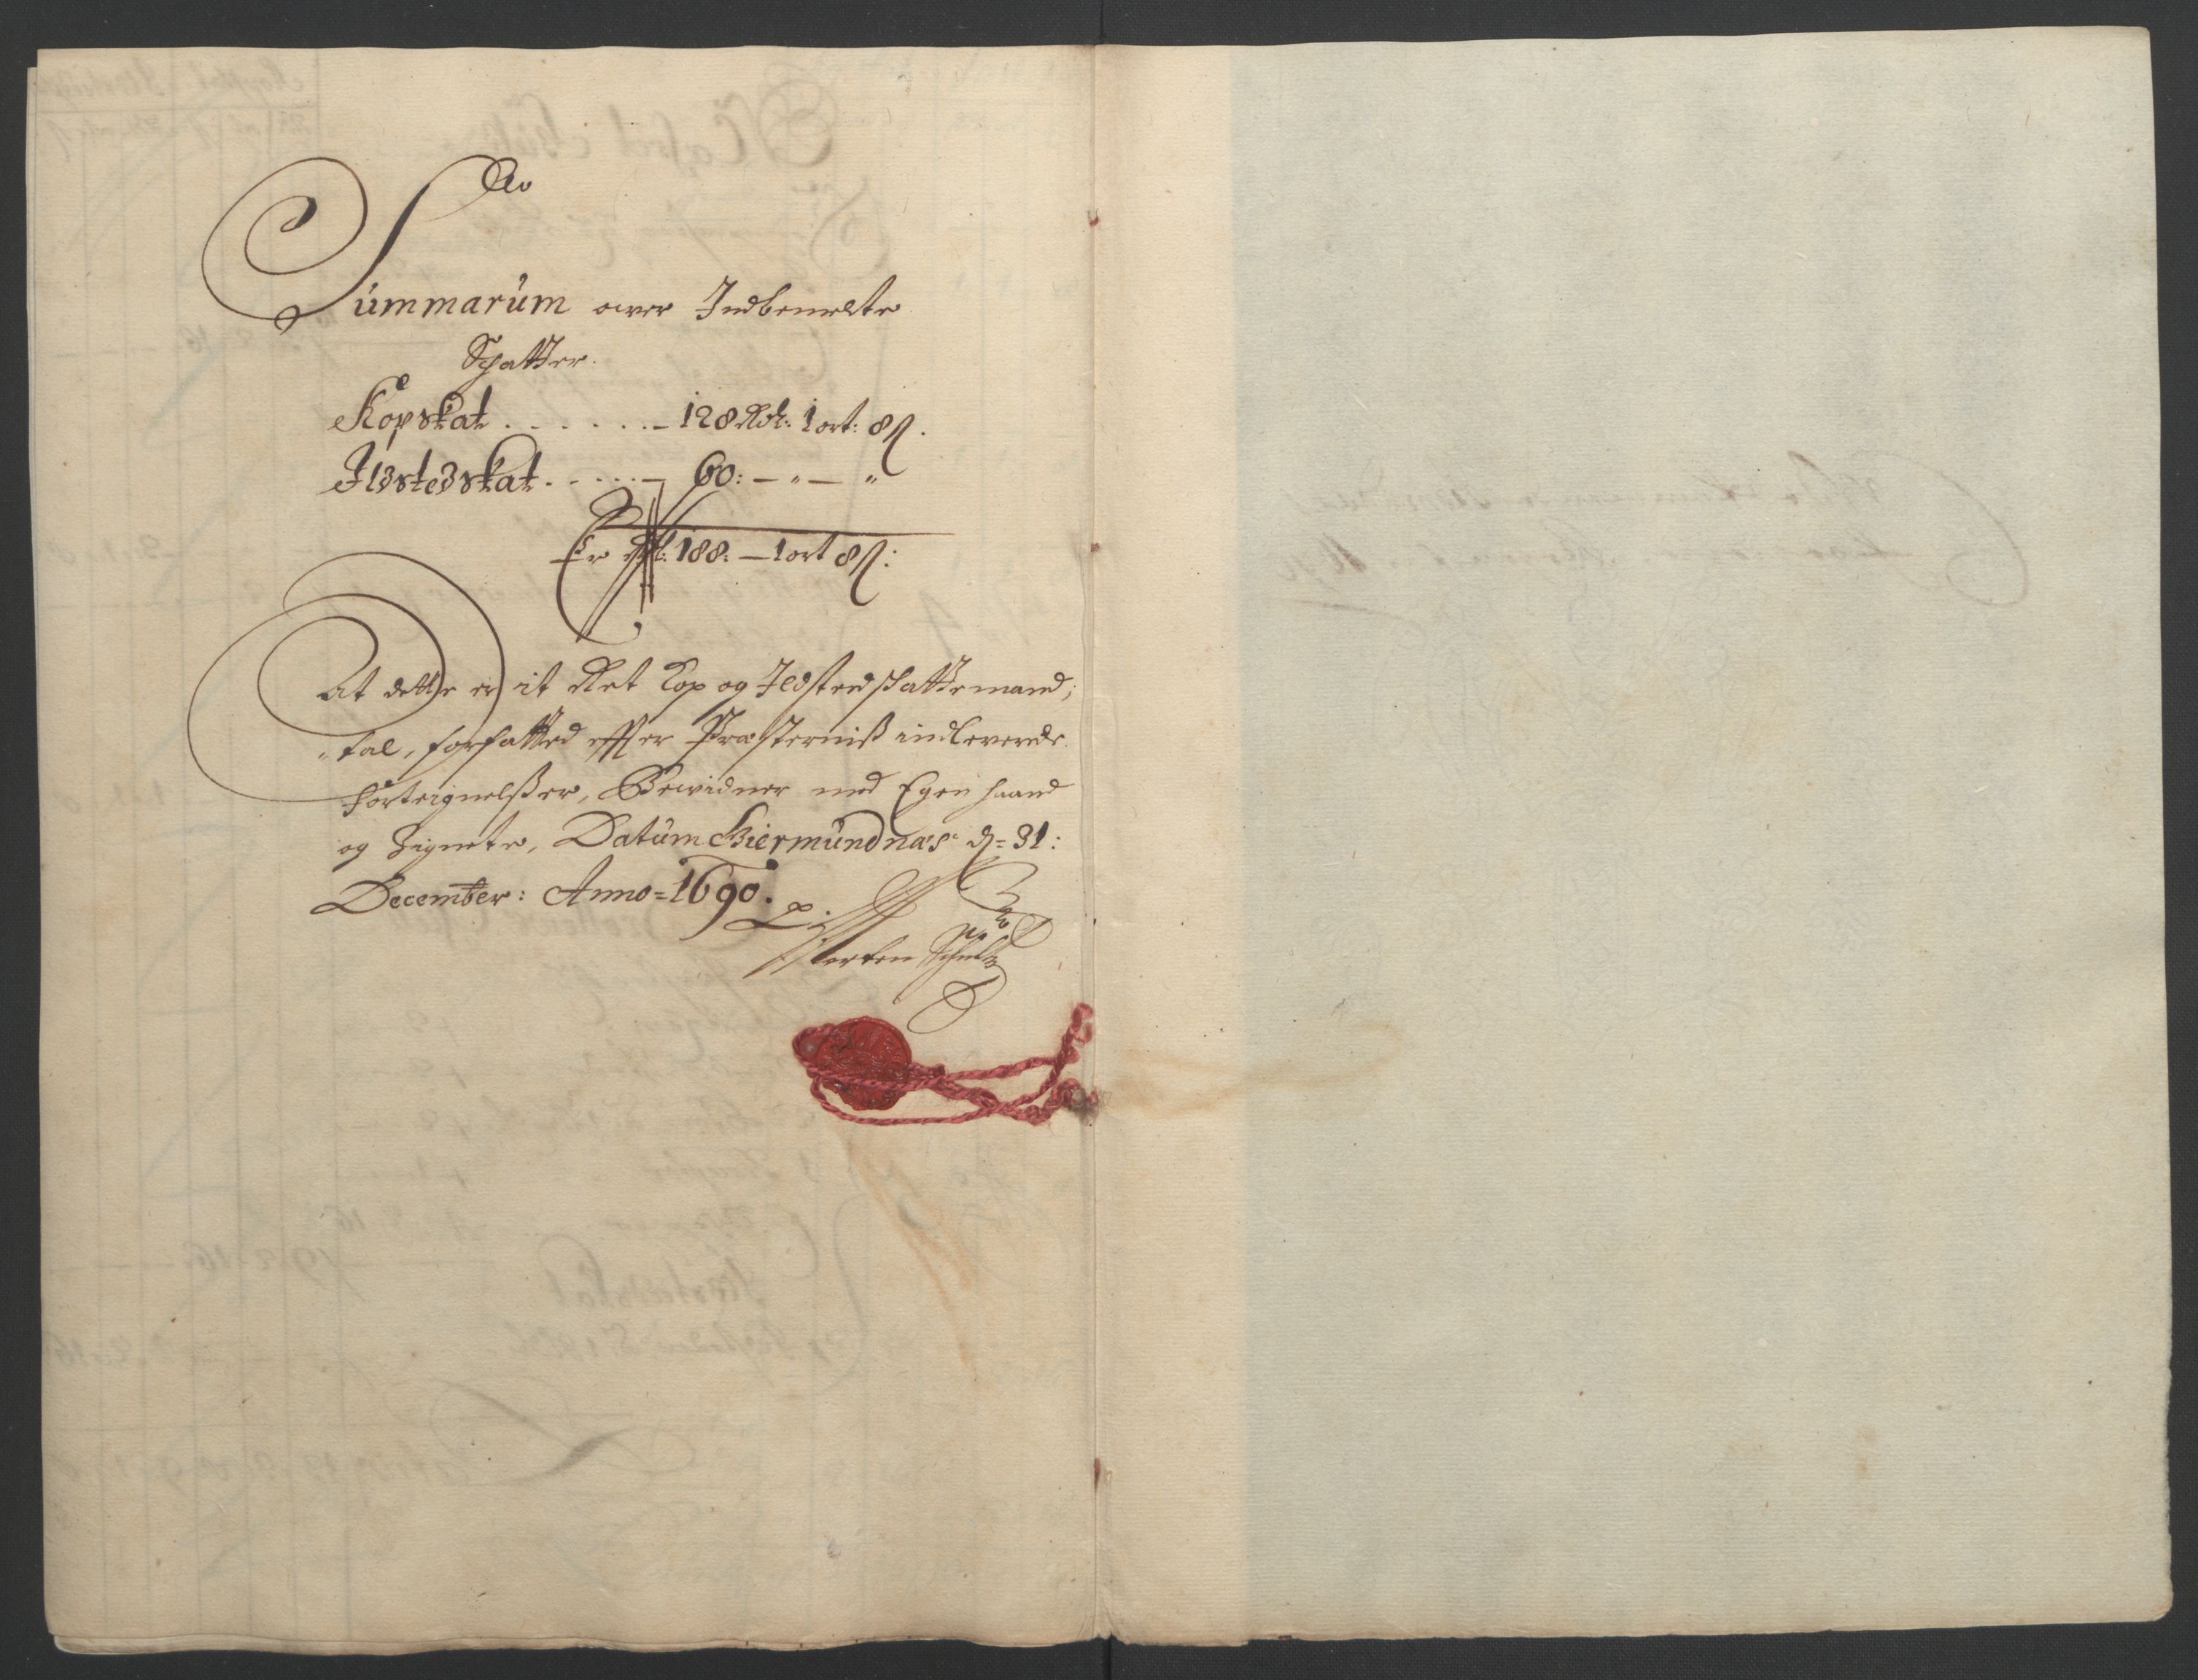 Summarum over Indbemelte
Schatter.
Kopskat . . . . . . . 128 Rdr: 1 ort: 8 ß.
Ildstedskat . . . . . 60: — " — "
Er Rdr: 188: — 1 ort 8 ß:
At dette er it Ret Kop og Ildstedschatte mand,
"tal, forfatted effter Præsterniß indleverede
Forteignelßer, Bevidner med Egen haand
og Zignete, Datum Biermundnæs d= 31:
December: Anno= 1690.